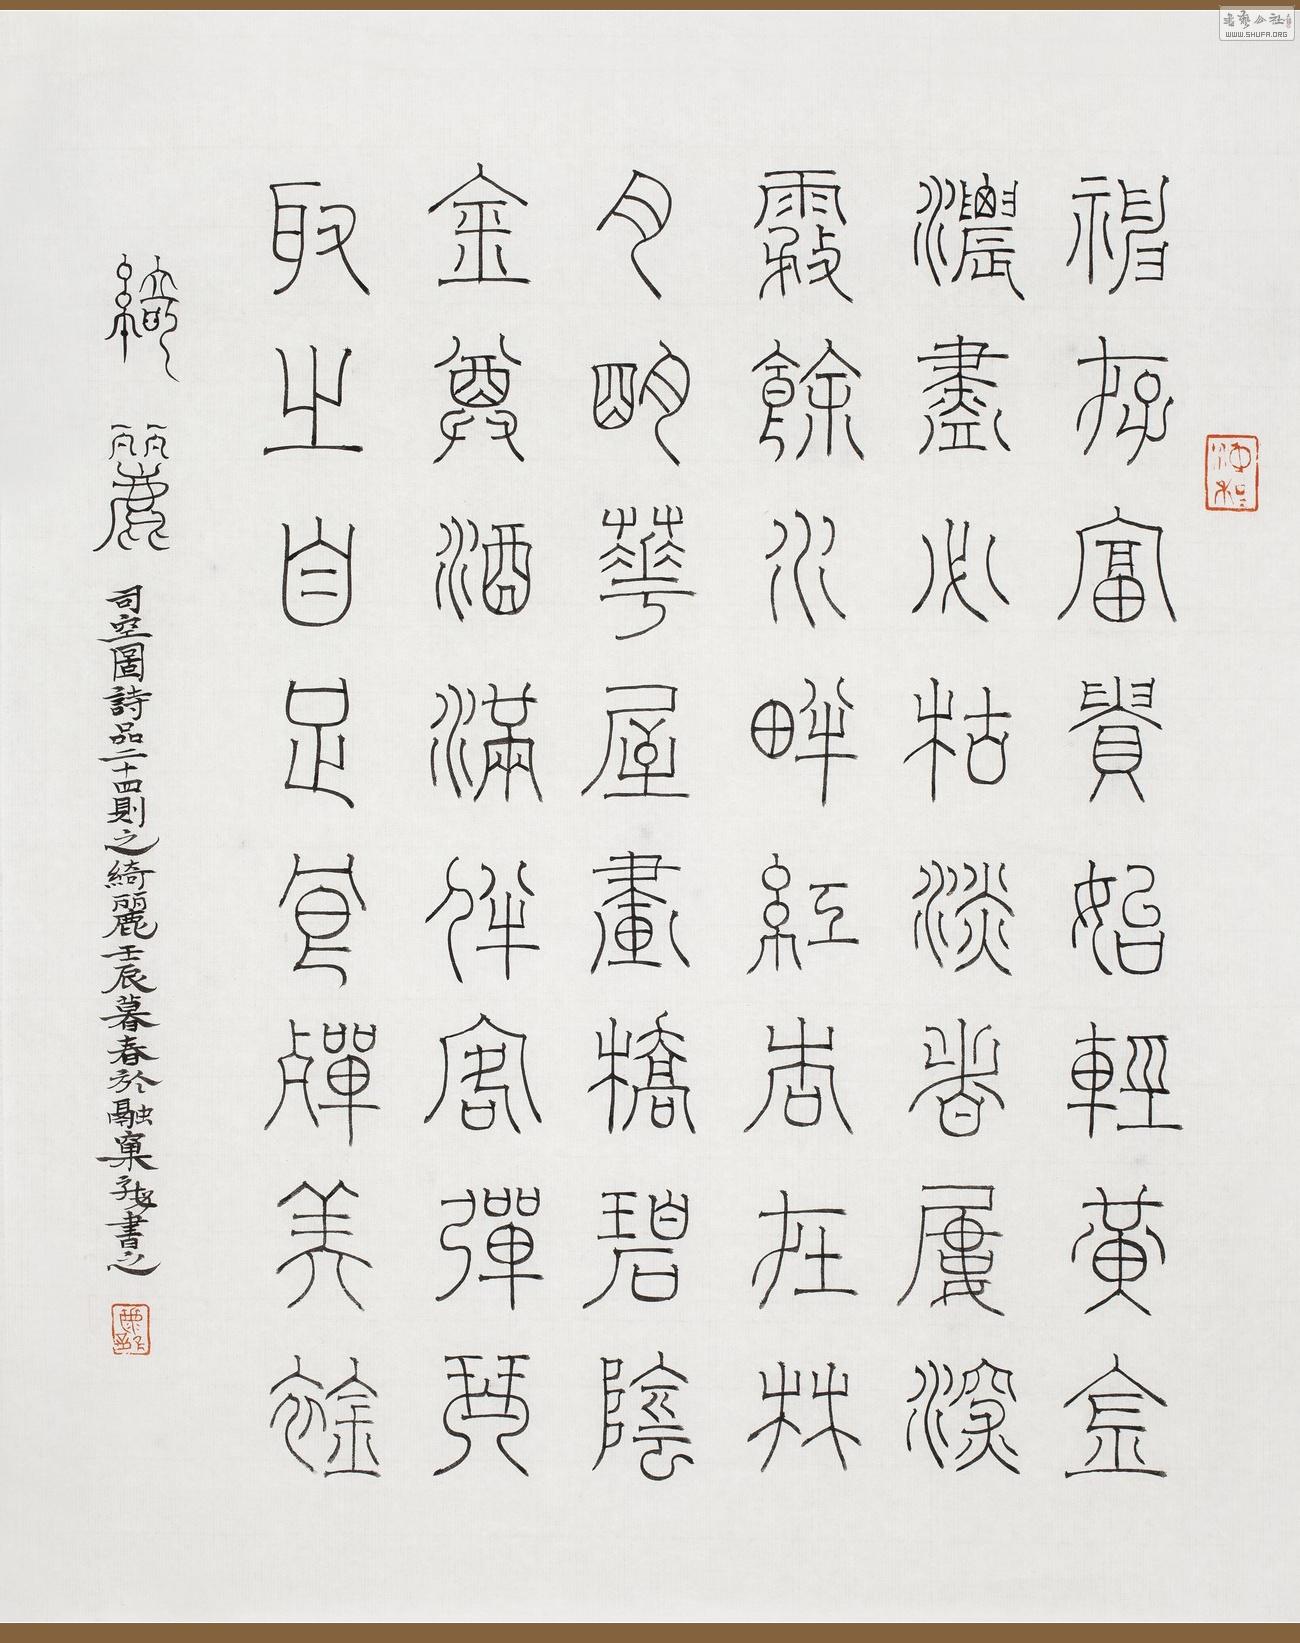 神存富貴始輕黃金
濃盡必枯淡者屢深
霧餘水畔紅杏在林
月明華屋畫橋碧陰
金尊酒滿伴客彈琴
取之自足良殫美襟
綺麗
司空圖詩品二十四則之綺麗壬辰暮春於融窠書之
書藝公社
WWW.SHUFA.ORG